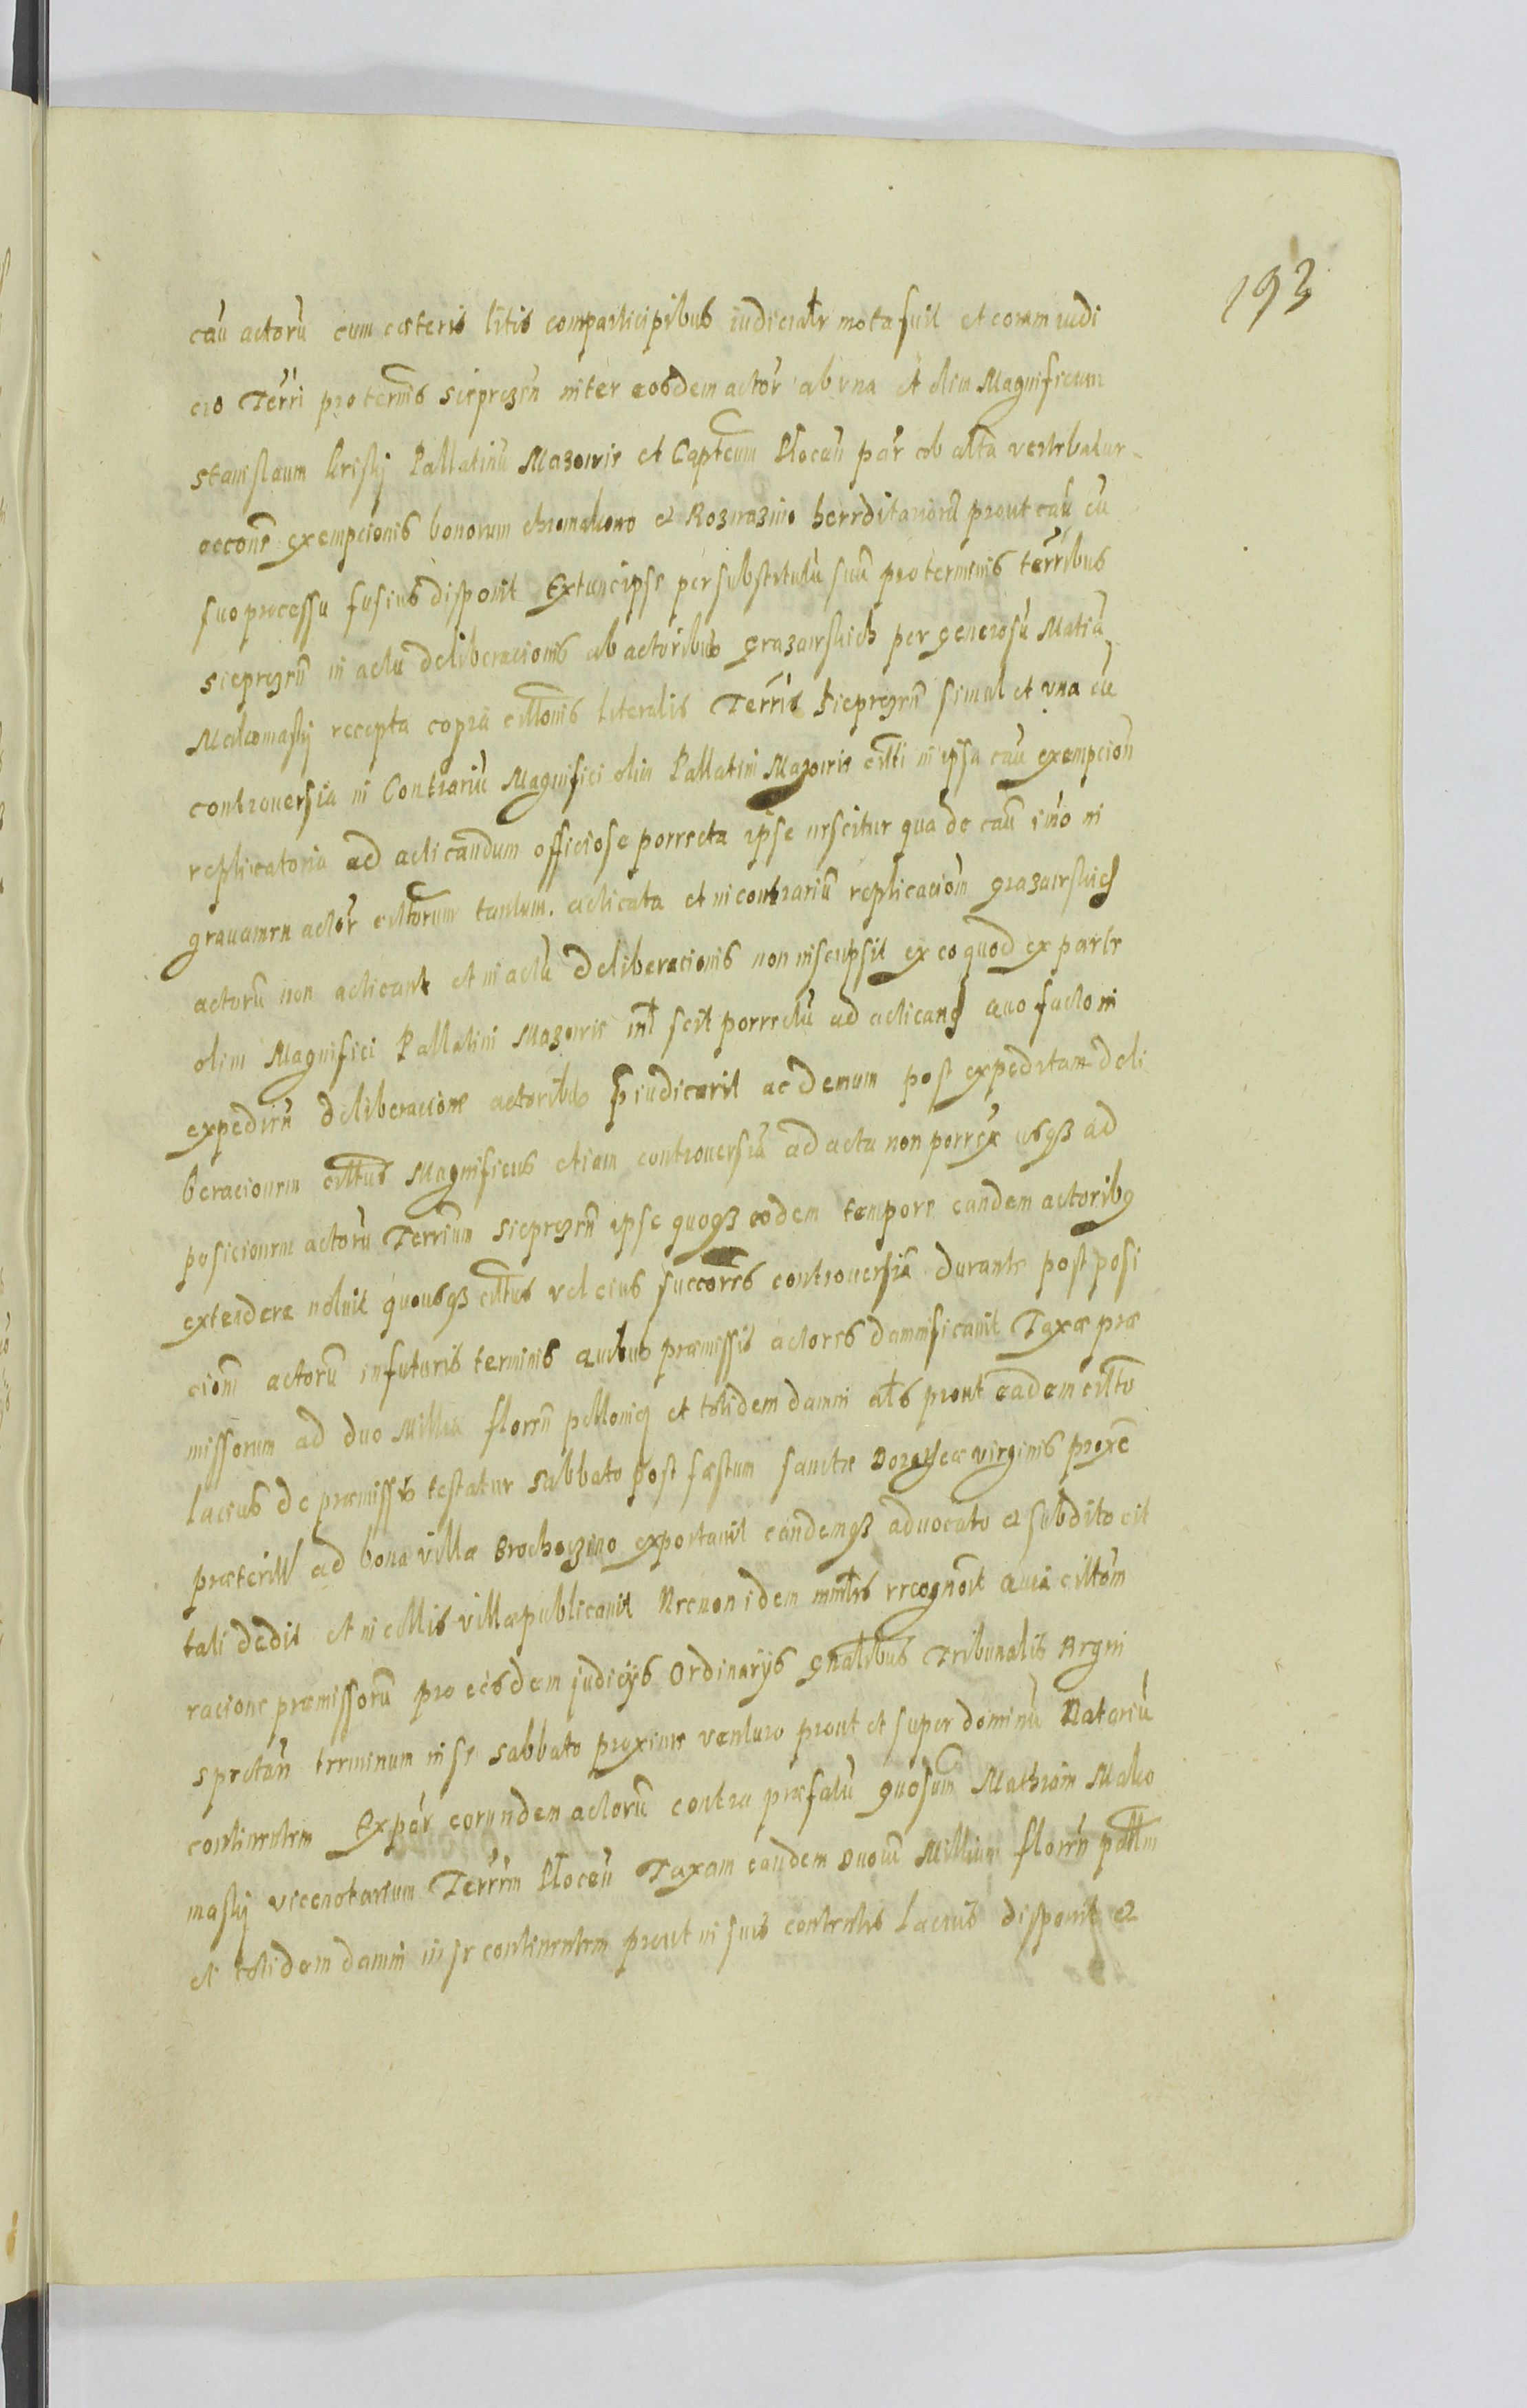 193
cau actorū cum cæteris litis comparticipibus iudicialr mota fuit et coram iudi
cio Terri pro termis siepregzn inter eosdem actor ab una et olim Magnificum
Stanislaum krisky Pallatinū Mazouie et Capteum Plocen par ob alta vertebatur
accone exempcionis bonorum chromakowo et Rozwazino herrditariorū prout cau cu
suo processu fusius disponit Extunc ipse per substitutū suū pro terminis terribus
sieprezn in actu deliberacionis ab actoribus grazawskich per generosū Matiā
Malomasky recepta copia cittonis literalis Terris sieprezn simul et una cū
controuersia in Contrariū Magnifici olim Pallatini Mazouie citti in ipsa cau exempcion
replicatoria ad acticandum officiose porrecta ipse nescitur qua de cau imo in
grauamen actor cittorum tantum acticata et in contrariū replicaciom grazawskich
actorū non acticant et in actū deliberacionis non inscripsit ex eo quod ex parte
olim Magnifici Pallatini Mazouie scit porrectū ad acticand quo facto in
expedien deliberacione actoribus piudicavit ac demum post expeditam deli
beracionem cittus Magnificus etiam controuersiā ad acta non porrex usqз ad
posicionem actorū Terrium sieprezn ipse quoqз eodem tempore eandem actoribg
extendere noluit quousqз cittus vel eius succores controuersiā durante post posi
cioni actorū in futuris terminis quibus præmissis actores damnificauit Taxæ præ
missorum ad duo Millia florrn pollonicz et totidem damni als prout eadem citto
lacius de præmissis testatur sabbato post fæstum sanctæ Dorotheæ virginis proxē
præterill ad bona villæ Brochoczino exportauit eandemqз aduocato et subdito cit
tali dedit et in ellis villæ publicauit Necnon idem minlis recognoit quia cittom
racione præmissorū pro eisdem judicijs Ordinarijs gnalibus Tribunalis Regni
spectan terminum in se sabbato proxime venturo prout et super dominū Notariū
continentem Ex par eorundem actorū contra præfatū gnosum Mathiam Malo
masky vicenotarium Terrim Plocen Taxam eandem duoru Millium florrn pollm
et totidem damni in se continentem prout in suis contentis Lacius disponit et